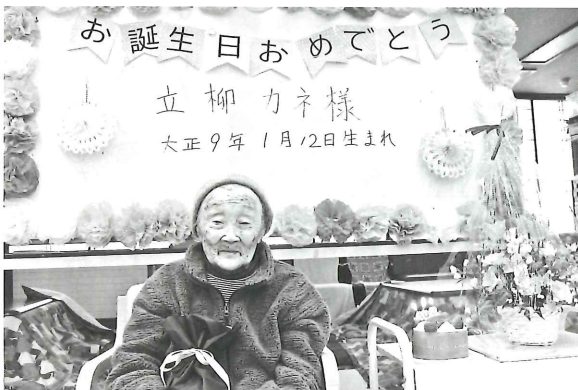 お誕生日おめでとう
立柳 カネ様
大正9年 1月12日生まれ